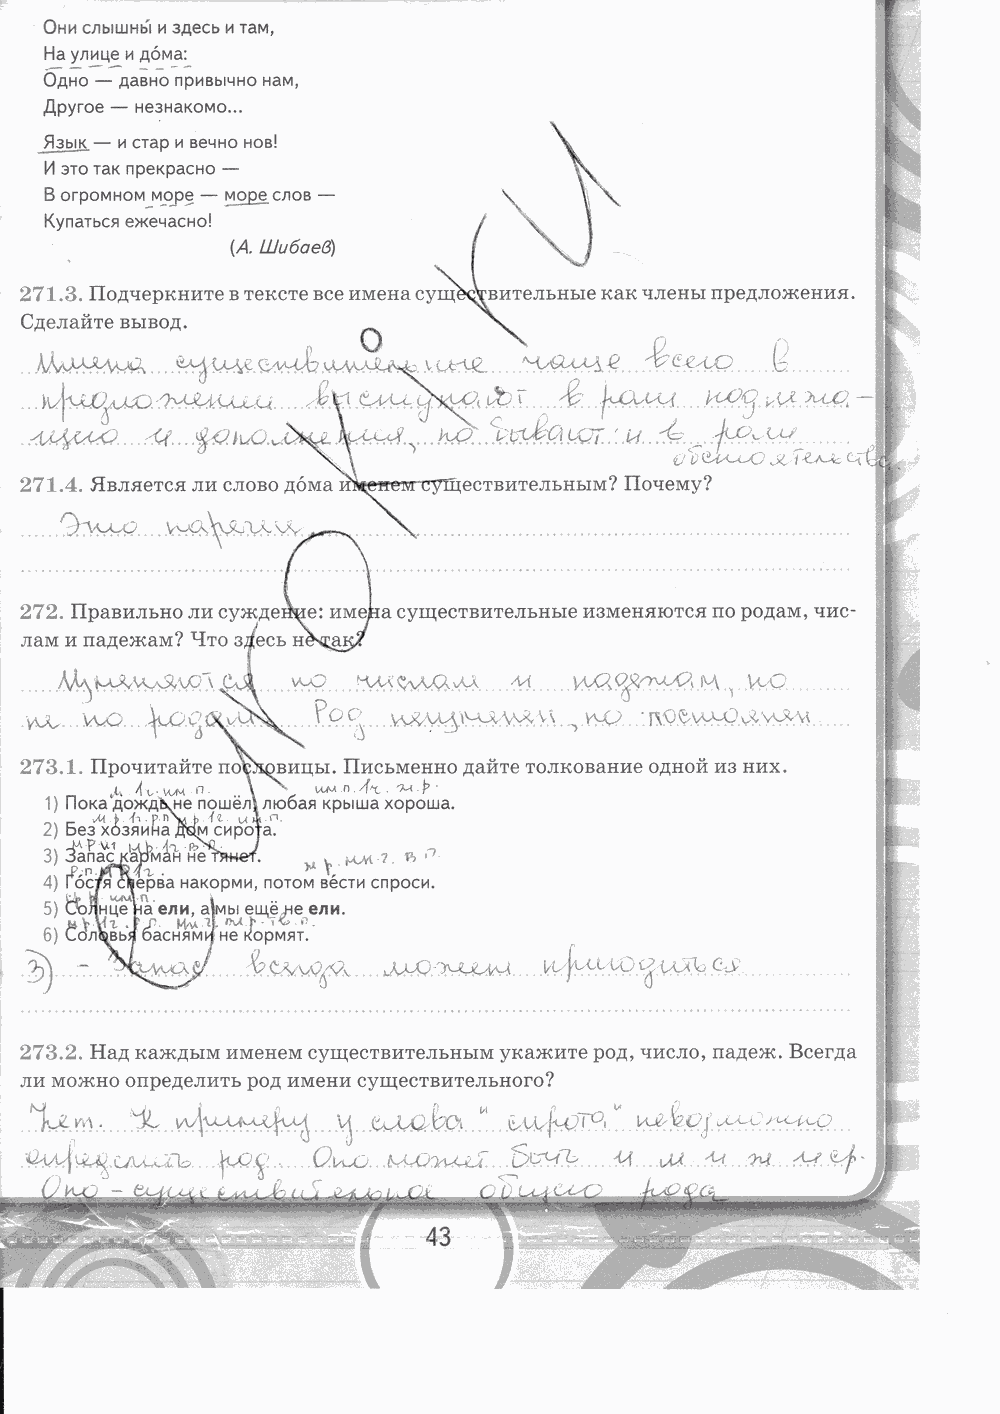 Они слышны́ и здесь и там,
На улице и до́ма:
Одно — давно привычно нам,
Другое — незнакомо...
Язык — и стар и вечно нов!
И это так прекрасно —
В огромном море — море слов —
Купаться ежечасно!
(А. Шибаев)
271.3. Подчеркните в тексте все имена существительные как члены предложения.
Сделайте вывод.
Имена существительные чаще всего в
предложении выступают в роли подлежа-
щего и дополнения, но бывают и в роли
обстоятельства
271.4. Является ли слово до́ма именем существительным? Почему?
Это наречие
272. Правильно ли суждение: имена существительные изменяются по родам, чис-
лам и падежам? Что здесь не так?
Изменяются по числам и падежам, но
не по родам. Род неизменен, но постоянен
273.1. Прочитайте пословицы. Письменно дайте толкование одной из них.
м. 1ч. им. п. им. п. 1ч. ж. р.
1) Пока дождь не пошёл, любая крыша хороша.
м. р. 1ч. р. п. м. р. 1ч. им. п.
2) Без хозяина дом сирота.
м. р. 1ч. в. п.
3) Запас карман не тянет.
р. п. м. р. 1ч. м. р. мн. ч. в. п.
4) Го́стя сперва накорми, потом ве́сти спроси.
ср. р. им. п.
5) Солнце на ели, а мы ещё не ели.
м. р. 1ч. р. п. мн. ч. ж. р. тв. п.
6) Соловья баснями не кормят.
3) – Запас всегда может пригодиться
273.2. Над каждым именем существительным укажите род, число, падеж. Всегда
ли можно определить род имени существительного?
Нет. К примеру у слова "сирота" невозможно
определить род. Оно может быть и м и ж и ср.
Оно – существительное общего рода
43